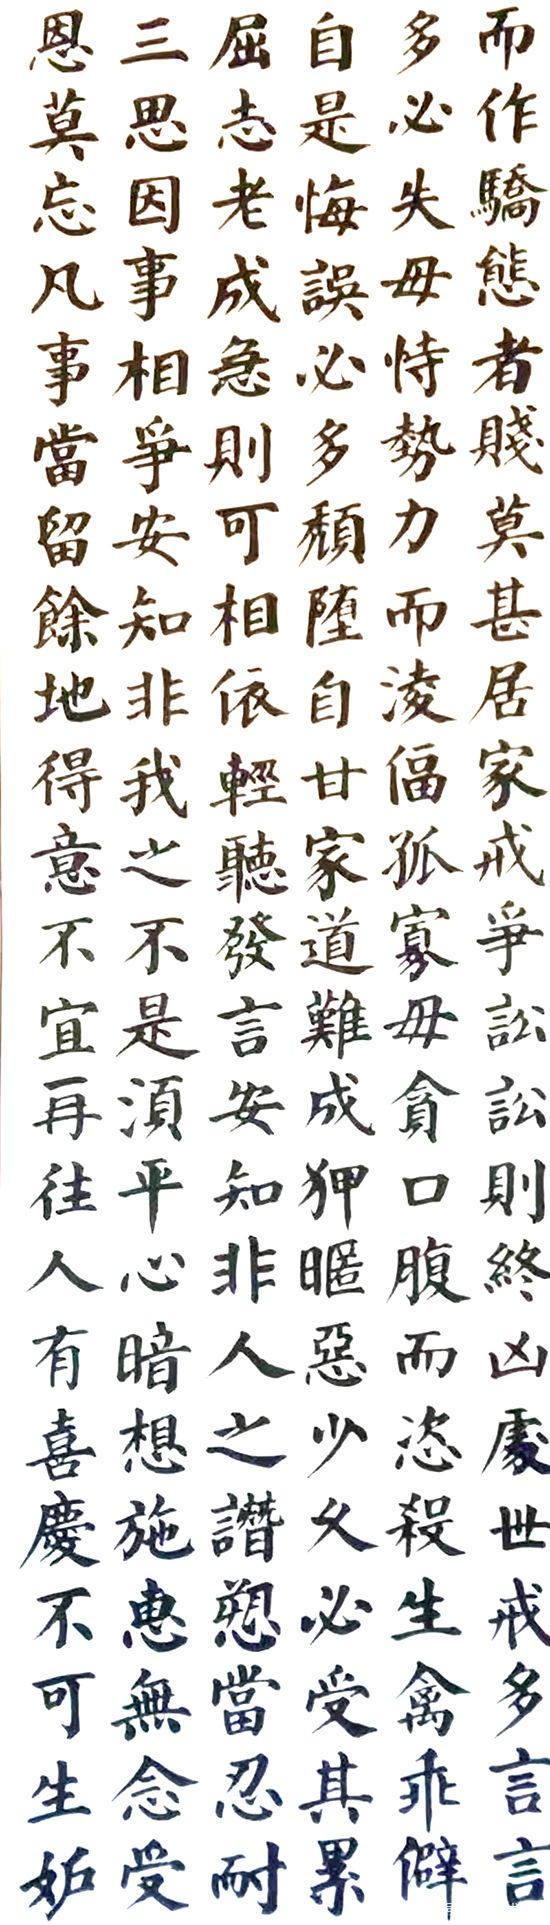 而作驕態者賤莫甚居家戒爭訟訟則終凶處世戒多言言
多必失毋恃勢力而淩偪孤寡毋貪口腹而恣殺生禽乖僻
自是悔誤必多頹墮自甘家道難成狎暱惡少久必受其累
屈志老成急則可相依輕聽發言安知非人之譖愬當忍耐
三思因事相爭安知非我之不是須平心暗想施惠無念受
恩莫忘凡事當留餘地得意不宜再往人有喜慶不可生妬